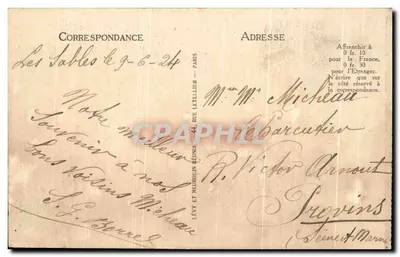 CORRESPONDANCE
Les Sables le 9-6-24
Notre meilleur
Souvenir à nos
bons Voisins Micheau
S. G. Berre
LÉVY ET NEURDEIN RÉUNIS, 44, RUE LETELLIER - PARIS
CPARAMA
ADRESSE
Affranchir à
0 fr. 10
pour la France,
0 fr. 30
pour l'Étranger.
N'écrire que sur
le côté réservé à
la correspondance.
Mme Mr Micheau
Charcutier
R. Victor Arnout
Provins
(Seine et Marne